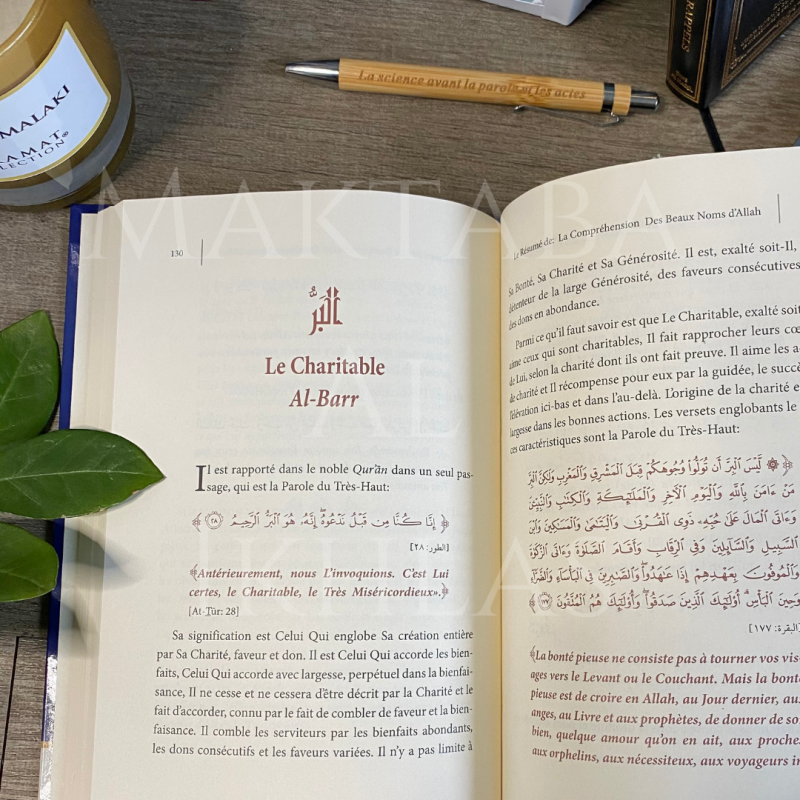 MALAKI
La science avant la parole et les actes
RAPPELS
MAKTABA
AL
IKHLAS
130
البَرُّ
Le Charitable
Al-Barr
Il est rapporté dans le noble Qur'ān dans un seul pas-
sage, qui est la Parole du Très-Haut:
﴿ إِنَّا كُنَّا مِن قَبْلُ نَدْعُوهُ إِنَّهُ هُوَ الْبَرُّ الرَّحِيمُ ٢٨ ﴾
[الطور: ٢٨]
﴾Antérieurement, nous L'invoquions. C'est Lui
certes, le Charitable, le Très Miséricordieux».﴿
[At-Tūr: 28]
Sa signification est Celui Qui englobe Sa création entière
par Sa Charité, faveur et don. Il est Celui Qui accorde les bien-
faits, Celui Qui accorde avec largesse, perpétuel dans la bienfai-
sance, Il ne cesse et ne cessera d'être décrit par la Charité et le
fait d'accorder, connu par le fait de combler de faveur et la bien-
faisance. Il comble les serviteurs par les bienfaits abondants,
les dons consécutifs et les faveurs variées. Il n'y a pas limite à
Le Résumé de: La Compréhension Des Beaux Noms d'Allah
Sa Bonté, Sa Charité et Sa Générosité. Il est, exalté soit-Il,
détenteur de la large Générosité, des faveurs consécutives
des dons en abondance.
Parmi ce qu'il faut savoir est que Le Charitable, exalté soit
aime ceux qui sont charitables, Il fait rapprocher leurs
de Lui, selon la charité dont ils ont fait preuve. Il aime les
de charité et Il récompense pour eux par la guidée, le
l'élévation ici-bas et dans l'au-delà. L'origine de la charité
largesse dans les bonnes actions. Les versets englobants
ces caractéristiques sont la Parole du Très-Haut:
﴿ ۞ لَّيْسَ الْبِرَّ أَن تُوَلُّوا وُجُوهَكُمْ قِبَلَ الْمَشْرِقِ وَالْمَغْرِبِ وَلَٰكِنَّ الْبِرَّ
مَنْ ءَامَنَ بِاللَّهِ وَالْيَوْمِ الْآخِرِ وَالْمَلَائِكَةِ وَالْكِتَابِ وَالنَّبِيِّينَ
وَءَاتَى الْمَالَ عَلَىٰ حُبِّهِ ذَوِي الْقُرْبَىٰ وَالْيَتَامَىٰ وَالْمَسَاكِينَ وَابْنَ
السَّبِيلِ وَالسَّائِلِينَ وَفِي الرِّقَابِ وَأَقَامَ الصَّلَاةَ وَءَاتَى الزَّكَاةَ
وَالْمُوفُونَ بِعَهْدِهِمْ إِذَا عَاهَدُوا وَالصَّابِرِينَ فِي الْبَأْسَاءِ وَالضَّرَّاءِ
وَحِينَ الْبَأْسِ أُولَٰئِكَ الَّذِينَ صَدَقُوا وَأُولَٰئِكَ هُمُ الْمُتَّقُونَ ١٧٧ ﴾
[البقرة: ١٧٧]
﴾La bonté pieuse ne consiste pas à tourner vos vis-
ages vers le Levant ou le Couchant. Mais la bonté
pieuse est de croire en Allah, au Jour dernier, aux
anges, au Livre et aux prophètes, de donner de
bien, quelque amour qu'on en ait, aux
aux orphelins, aux nécessiteux, aux voyageurs